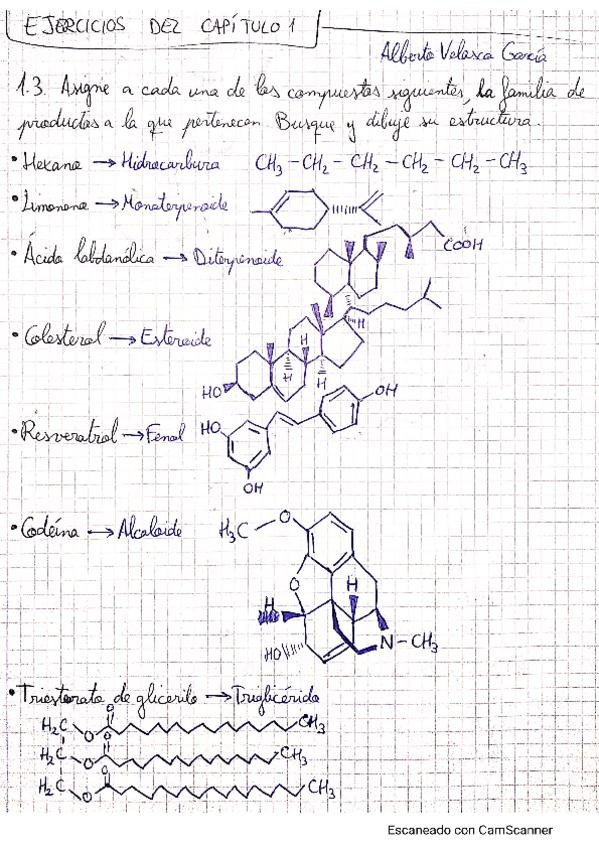 EJERCICIOS DEL CAPÍTULO 1
Alberto Velasco García
1.3. Asigne a cada uno de los compuestos siguientes, la familia de
productos a la que pertenecen. Busque y dibuje su estructura.
• Hexano → Hidrocarburo CH₃ – CH₂ – CH₂ – CH₂ – CH₂ – CH₃
• Limoneno → Monoterpenoide
• Ácido labdanólico → Diterpenoide COOH
• Colesterol → Esteroide H H H H HO
• Resveratrol → Fenol HO OH OH
• Codeína → Alcaloide H₃C O O H H HO N – CH₃
• Triestearato de glicerilo → Triglicérido
H₂C O O CH₃
H₂C O O CH₃
H₂C O O CH₃
Escaneado con CamScanner